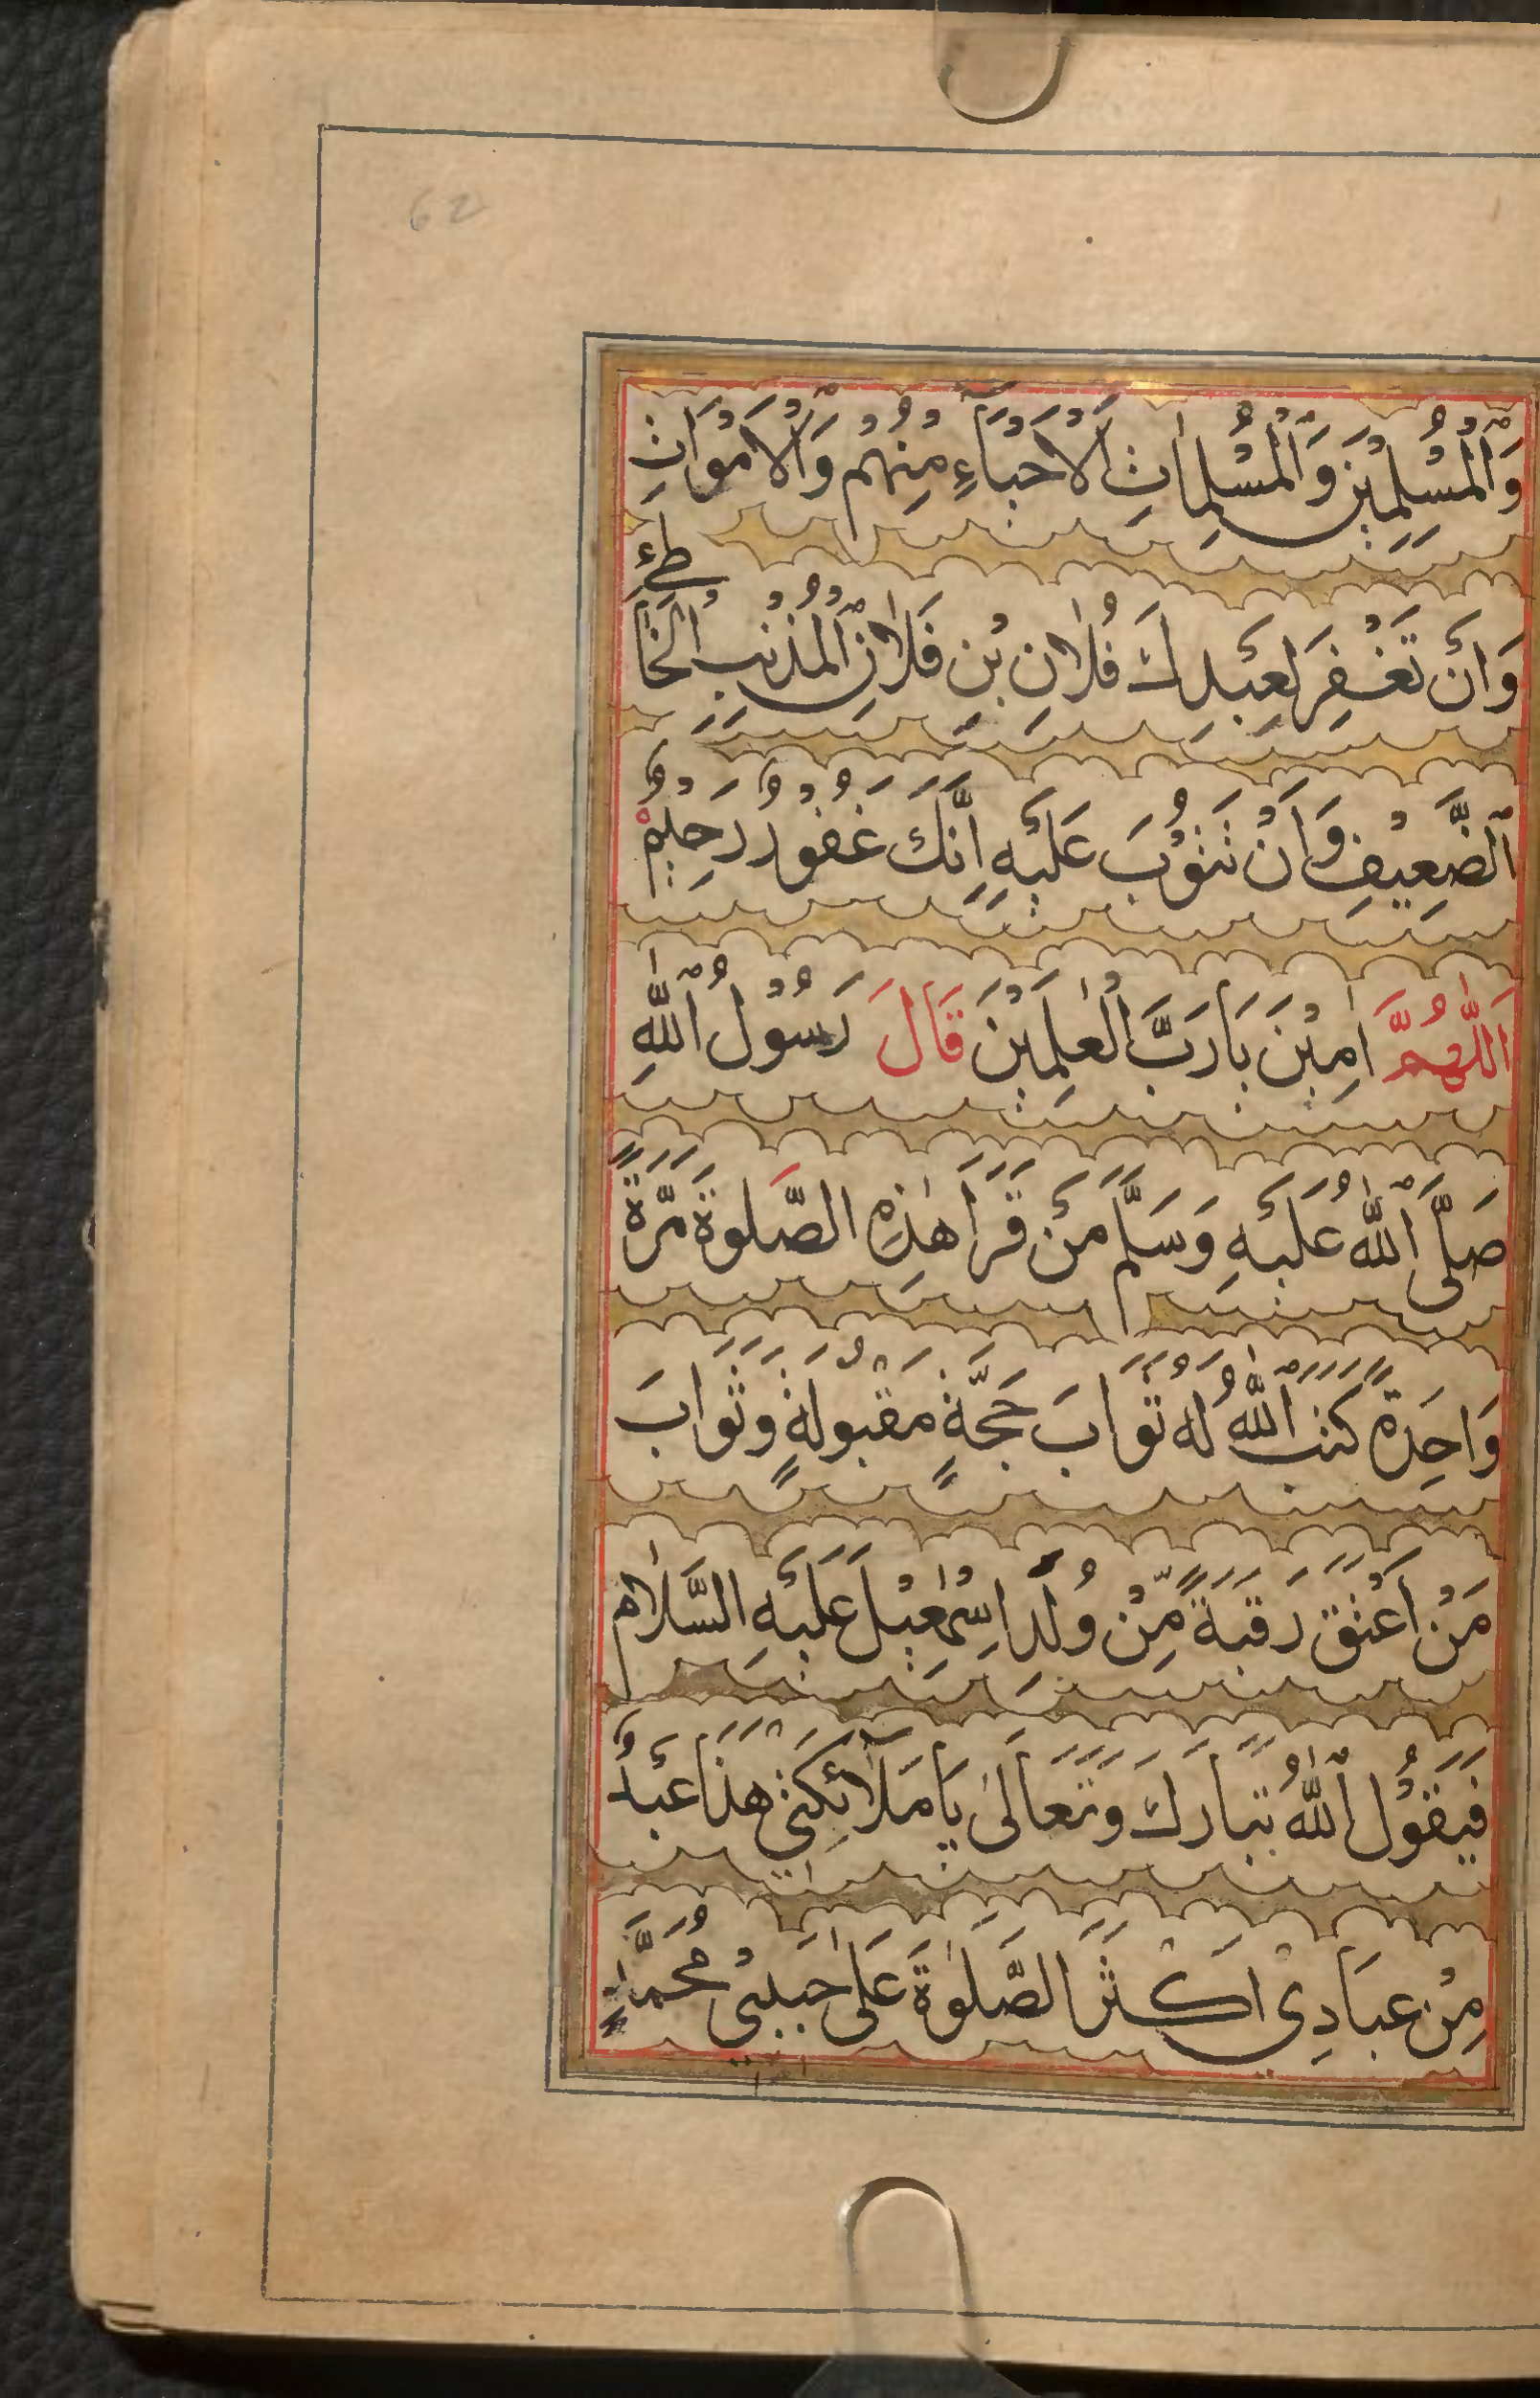 62
وَالْمُسْلِمِيْنَ وَالْمُسْلِمَاتِ الْاَحْيَآءِ مِنْهُمْ وَالْاَمْوَاتِ
وَاَنْ تَغْفِرَ لِعَبْدِكَ فُلَانِ بْنِ فُلَانِ الْمُذْنِبِ الْخَاطِئِ
الضَّعِيْفِ وَاَنْ تَتُوْبَ عَلَيْهِ اِنَّكَ غَفُوْرٌ رَحِيْمٌ
اَللّٰهُمَّ اٰمِيْنَ يَارَبَّ الْعٰلَمِيْنَ قَالَ رَسُوْلُ اللّٰهِ
صَلَّى اللّٰهُ عَلَيْهِ وَسَلَّمَ مَنْ قَرَاَ هٰذِهِ الصَّلٰوةَ مَرَّةً
وَاحِدَةً كَتَبَ اللّٰهُ لَهُ ثَوَابَ حَجَّةٍ مَقْبُوْلَةٍ وَثَوَابَ
مَنْ اَعْتَقَ رَقَبَةً مِّنْ وُلْدِ اِسْمٰعِيْلَ عَلَيْهِ السَّلَام
فَيَقُوْلُ اللّٰهُ تَبَارَكَ وَتَعَالٰى يَا مَلَآئِكَتِيْ هٰذَا عَبْدٌ
مِنْ عِبَادِيْ اَكْثَرَ الصَّلٰوةَ عَلٰى حَبِيْبِيْ مُحَمَّدٍ